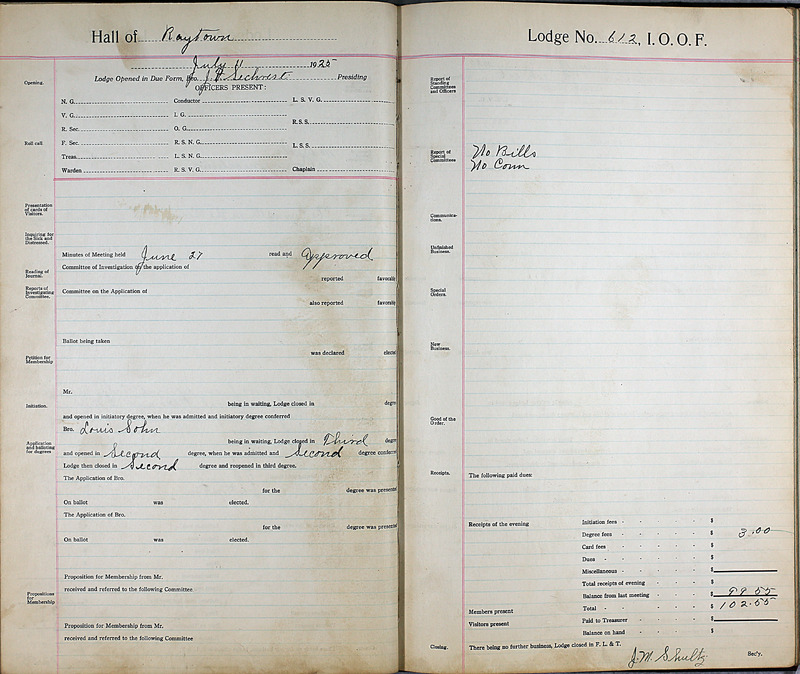 Hall of Raytown
July 11 1925
Lodge Opened in Due Form, Bro. J. F. Sechrest Presiding
Opening.
OFFICERS PRESENT:
N. G. Conductor L. S. V. G.
V. G. I. G.
R. S. S.
R. Sec. O. G.
Roll call
F. Sec. R. S. N. G. L. S. S.
Treas. L. S. N. G.
Warden R. S. V. G. Chaplain
Presentation of cards of Visitors.
Inquiring for the Sick and Distressed.
Minutes of Meeting held June 27 read and approved
Reading of Journal.
Committee of Investigation on the application of
reported favorably
Reports of Investigating Committee.
Committee on the Application of
also reported favorably
Ballot being taken
was declared elected
Petition for Membership
Mr.
Initiation.
being in waiting, Lodge closed in degree
and opened in initiatory degree, when he was admitted and initiatory degree conferred
Bro. Louis Sohn
Application and balloting for degrees
being in waiting, Lodge closed in Third degree
and opened in Second degree, when he was admitted and Second degree conferred
Lodge then closed in Second degree and reopened in third degree.
The Application of Bro.
for the degree was presented
On ballot was elected.
The Application of Bro.
for the degree was presented
On ballot was elected.
Proposition for Membership from Mr.
received and referred to the following Committee
Propositions for Membership
Proposition for Membership from Mr.
received and referred to the following Committee
Lodge No. 612, I. O. O. F.
Report of Standing Committees and Officers
Report of Special Committees
No Bills
No Comm
Communications.
Unfinished Business.
Special Orders.
New Business.
Good of the Order.
Receipts.
The following paid dues:
Receipts of the evening Initiation fees - $
Degree fees - $ 3.00
Card fees - $
Dues - $
Miscellaneous - $
Total receipts of evening - $
Balance from last meeting - $ 99.55
Members present Total - $ 102.55
Visitors present Paid to Treasurer - $
Balance on hand - $
Closing.
There being no further business, Lodge closed in F. L. & T.
J. M. Shultz Sec'y.